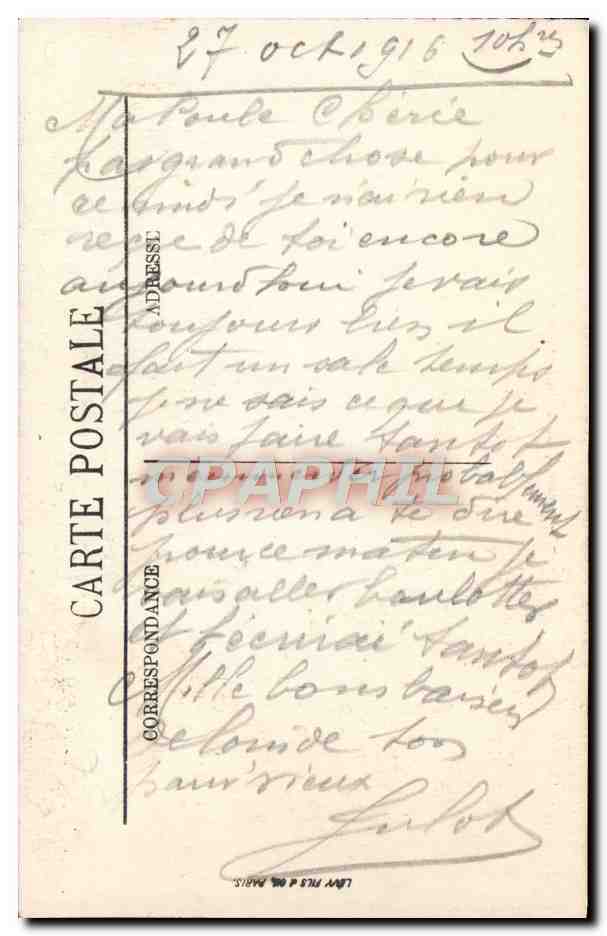 27 oct 1916 10hres
Ma Poule Chérie
pas grand chose pour
ce midi je n'ai rien
reçue de toi encore
aujourd'hui je vais
toujours bien il
fait un sale temps
je ne sais ce que je
vais faire tantot
probablement
plus rien a te dire
pour ce matin je
vais aller boulotter
et t'écrirai tantot
Mille bons baisers
De loin de ton
pauv' vieux
Julot
CARTE POSTALE
ADRESSE
CORRESPONDANCE
CPAPHIL
LÉVY FILS & Cie, PARIS.